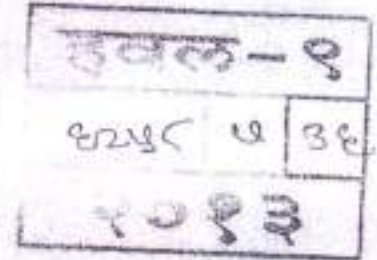 हवल-१
६२५८ ५ ३६
२०१३